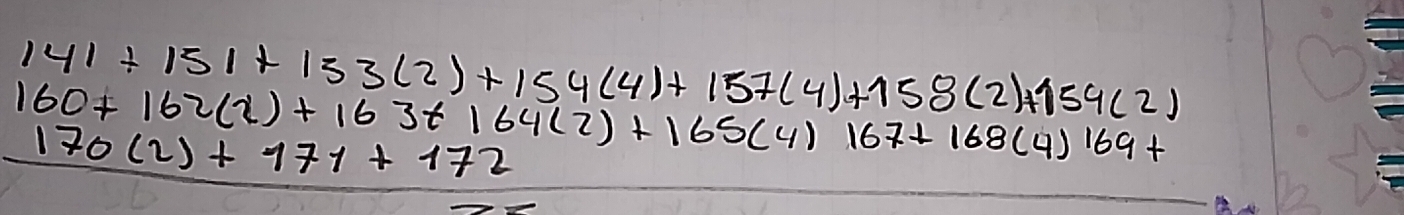 141 + 151 + 153(2) + 154(4) + 157(4) + 158(2) + 159(2)
160 + 162(2) + 163 + 164(2) + 165(4) 167 + 168(4) 169 +
170(2) + 171 + 172